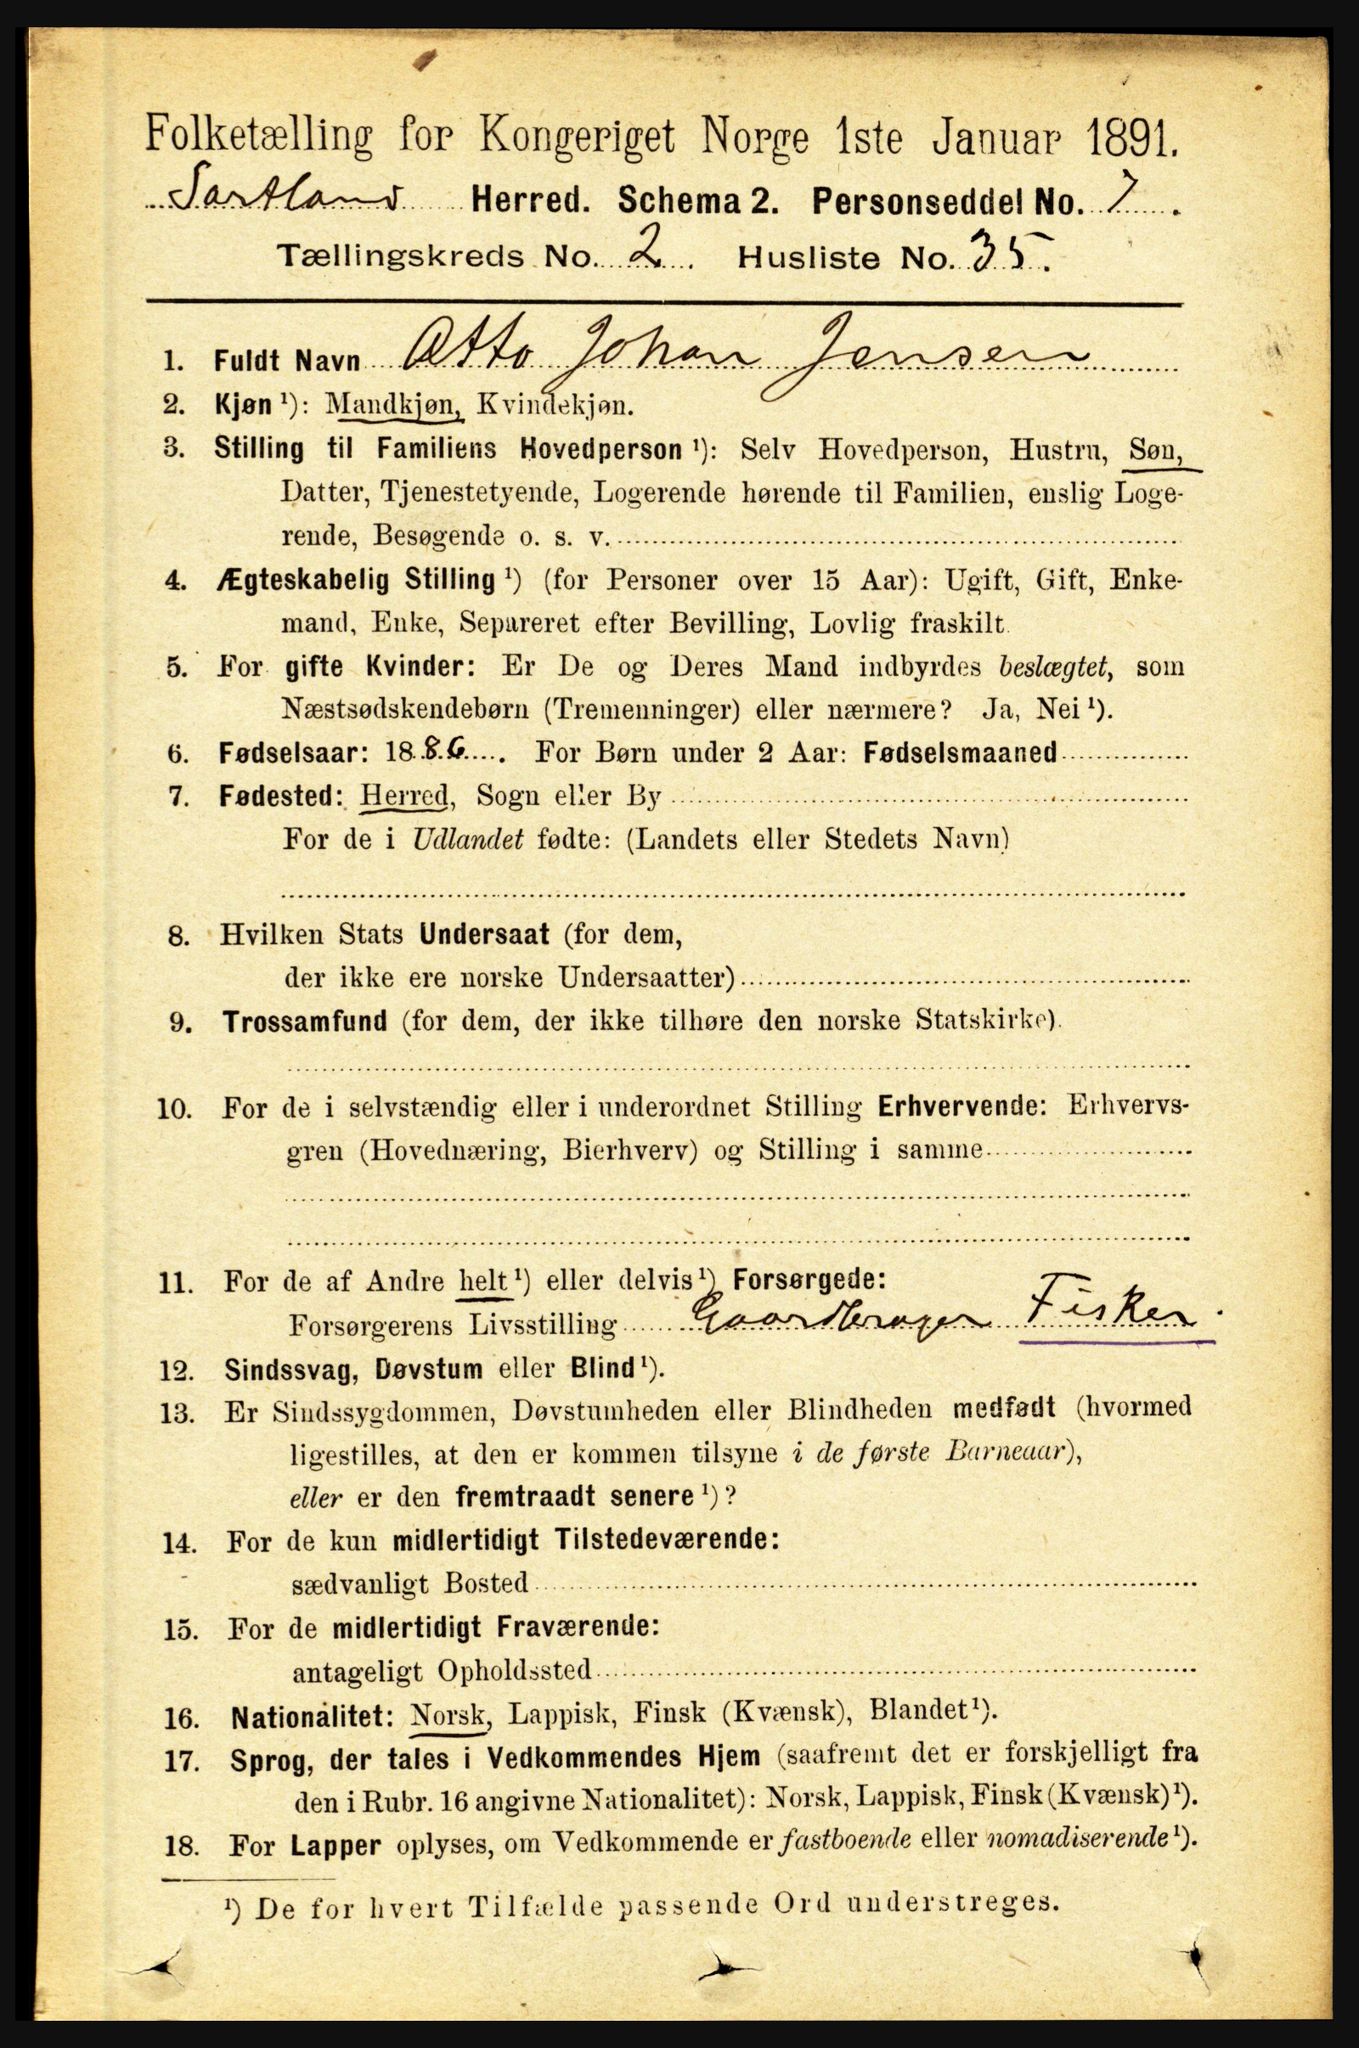 Folketælling for Kongeriget Norge 1ste Januar 1891.
Sortland Herred. Schema 2. Personseddel No. 7.
Tællingskreds No. 2. Husliste No. 35.
1. Fuldt Navn Otto Johan Jensen
2. Kjøn ¹): Mandkjøn, Kvindekjøn.
3. Stilling til Familiens Hovedperson ¹): Selv Hovedperson, Hustru, Søn,
Datter, Tjenestetyende, Logerende hørende til Familien, enslig Loge-
rende, Besøgende o. s. v.
4. Ægteskabelig Stilling ¹) (for Personer over 15 Aar): Ugift, Gift, Enke-
mand, Enke, Separeret efter Bevilling, Lovlig fraskilt
5. For gifte Kvinder: Er De og Deres Mand indbyrdes beslægtet, som
Næstsødskendebørn (Tremenninger) eller nærmere? Ja, Nei ¹).
6. Fødselsaar: 1886. For Børn under 2 Aar: Fødselsmaaned
7. Fødested: Herred, Sogn eller By
For de i Udlandet fødte: (Landets eller Stedets Navn)
8. Hvilken Stats Undersaat (for dem,
der ikke ere norske Undersaatter)
9. Trossamfund (for dem, der ikke tilhøre den norske Statskirke).
10. For de i selvstændig eller i underordnet Stilling Erhvervende: Erhvervs-
gren (Hovednæring, Bierhverv) og Stilling i samme
11. For de af Andre helt ¹) eller delvis ¹) Forsørgede:
Forsørgerens Livsstilling Gaardbruger Fisker.
12. Sindssvag, Døvstum eller Blind ¹).
13. Er Sindssygdommen, Døvstumheden eller Blindheden medfødt (hvormed
ligestilles, at den er kommen tilsyne i de første Barneaar),
eller er den fremtraadt senere ¹)?
14. For de kun midlertidigt Tilstedeværende:
sædvanligt Bosted
15. For de midlertidigt Fraværende:
antageligt Opholdssted
16. Nationalitet: Norsk, Lappisk, Finsk (Kvænsk), Blandet ¹).
17. Sprog, der tales i Vedkommendes Hjem (saafremt det er forskjelligt fra
den i Rubr. 16 angivne Nationalitet): Norsk, Lappisk, Finsk (Kvænsk) ¹).
18. For Lapper oplyses, om Vedkommende er fastboende eller nomadiserende ¹).
¹) De for hvert Tilfælde passende Ord understreges.